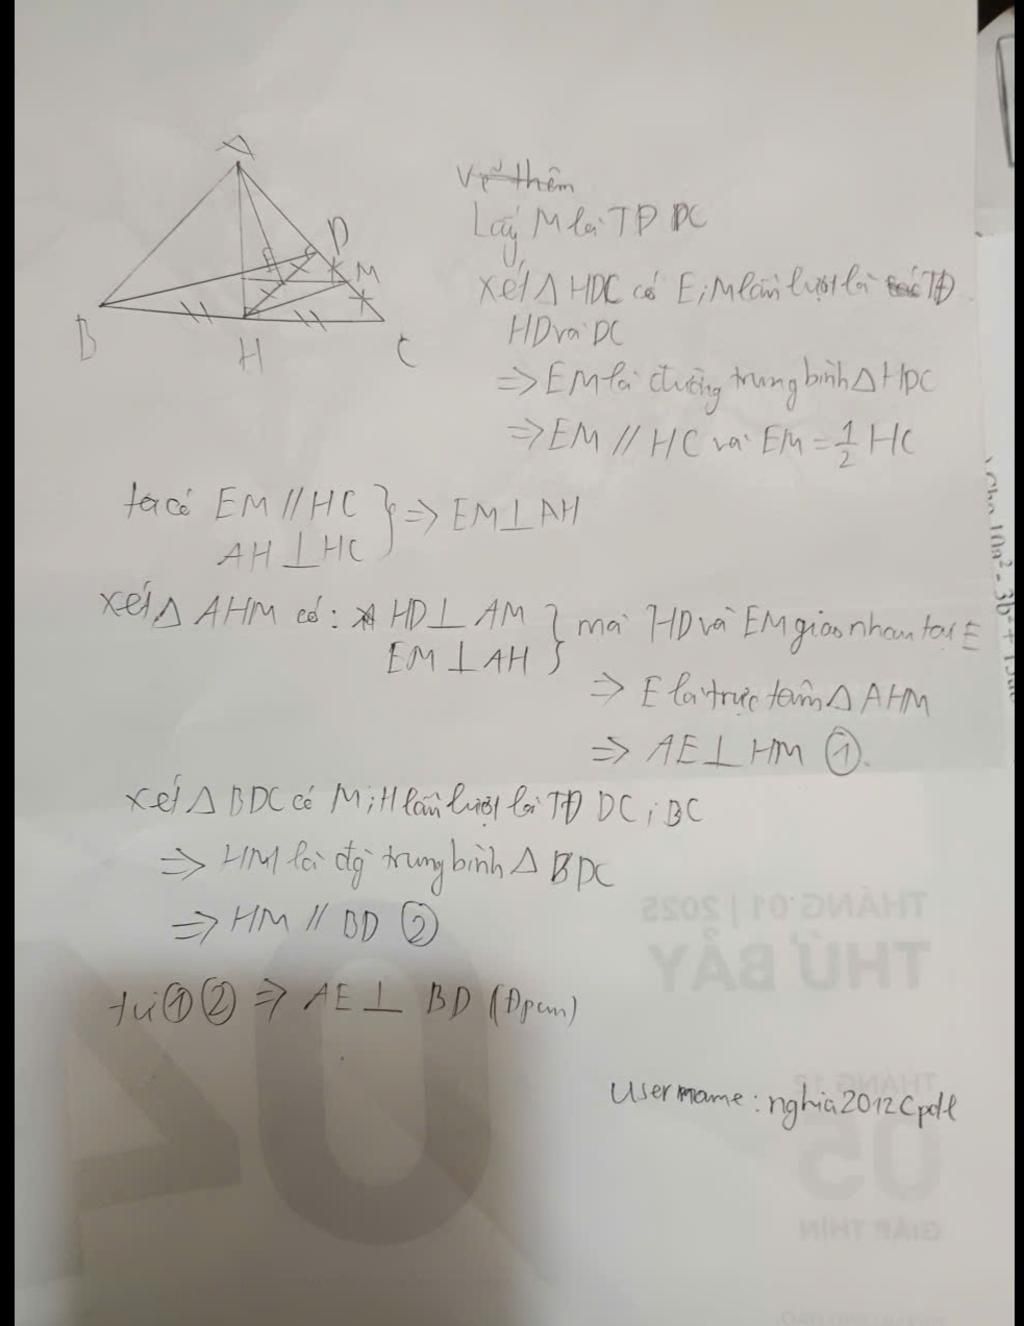 A
D
M
B
H
C
Vẽ thêm
Lấy M là TĐ DC
xét Δ HDC có E; M lần lượt là TĐ
HD và DC
=> EM là đường trung bình Δ HDC
=> EM // HC và EM = 1/2 HC
ta có EM // HC } => EM ⊥ AH
AH ⊥ HC
xét Δ AHM có: HD ⊥ AM } mà HD và EM giao nhau tại E
EM ⊥ AH
=> E là trực tâm Δ AHM
=> AE ⊥ HM ①.
xét Δ BDC có M; H lần lượt là TĐ DC; BC
=> HM là đg trung bình Δ BDC
=> HM // BD ②
từ ① ② => AE ⊥ BD (Đpcm)
THÁNG 01 | 2025
THỨ BẢY
04
THÁNG 12
05
GIÁP THÌN
Username: nghia2012cpdl